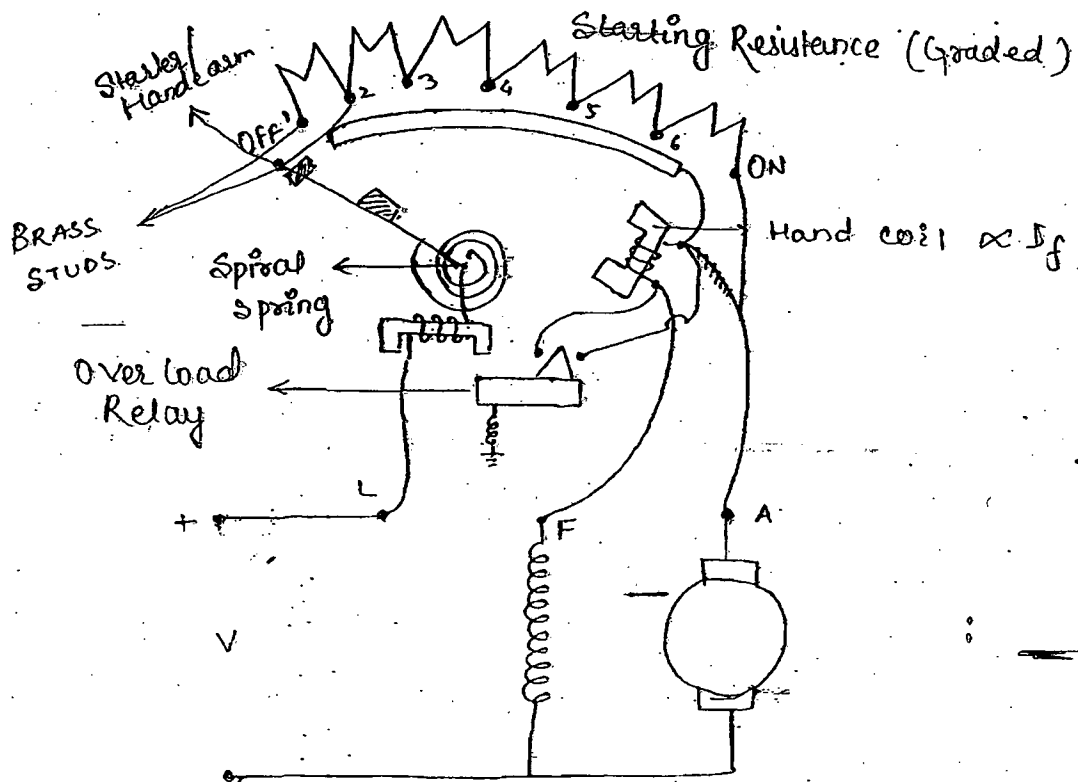 Starting Resistance (Graded)
Starter/
Handle arm
OFF
1
2
3
4
5
6
ON
BRASS
STUDS
Spiral
spring
Hand coil ∝ If
Over load
Relay
L
+
F
A
V